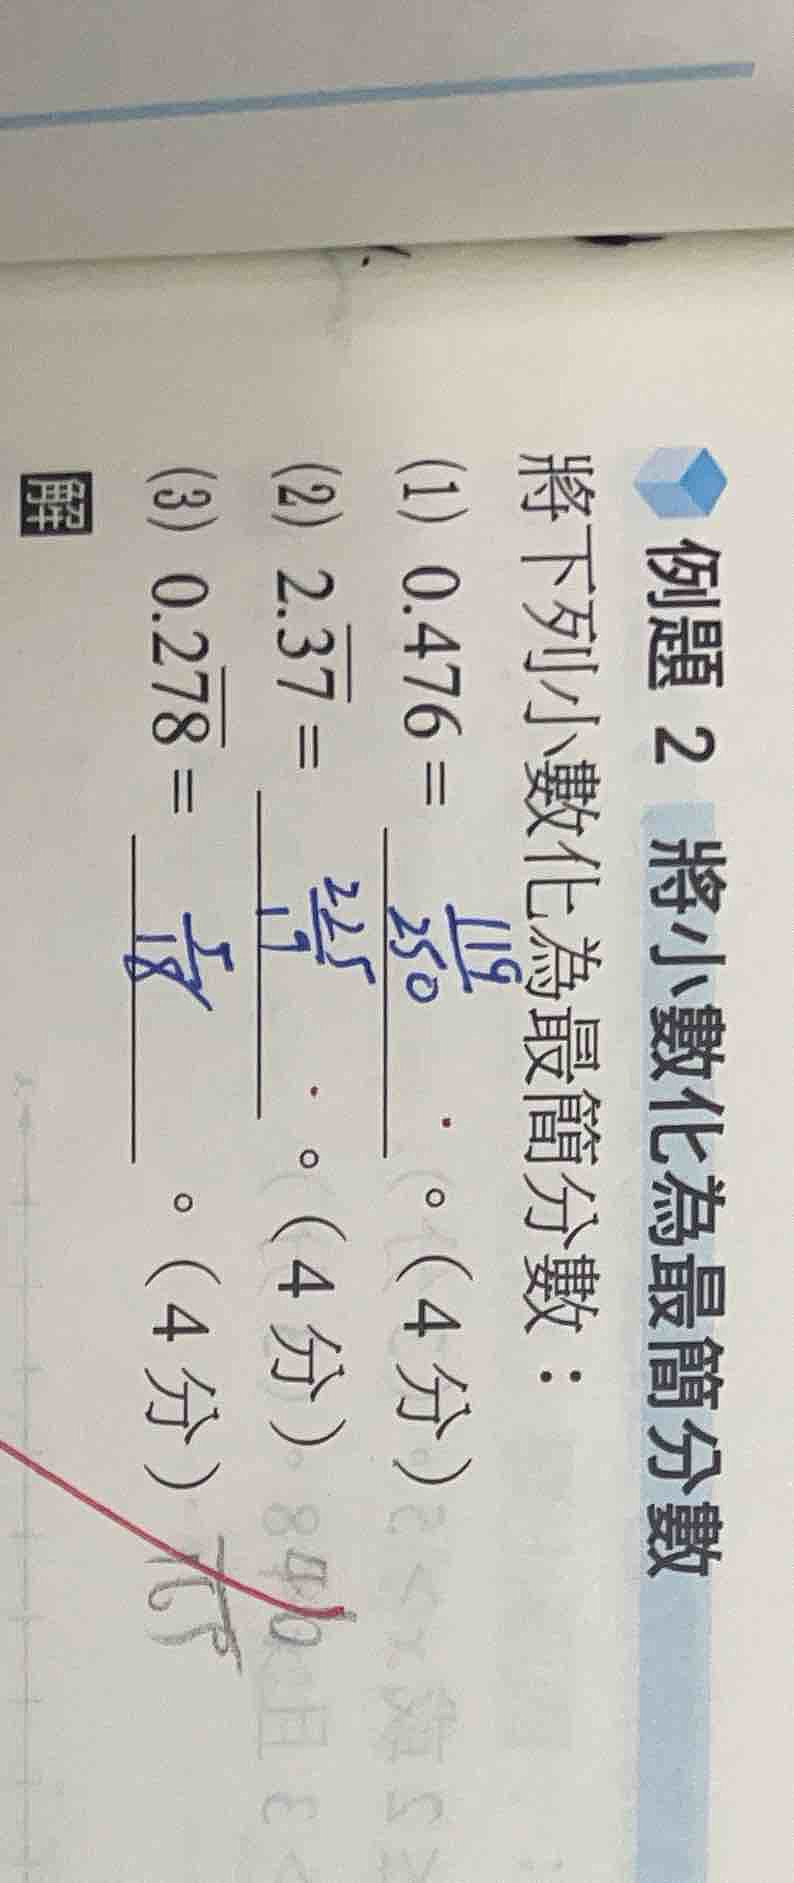 例題 2 將小數化為最簡分數
將下列小數化為最簡分數：
(1) 0.476 = 119/250 。(4 分)
(2) 2.3̅7̅ = 225/19 。(4 分)
(3) 0.27̅8̅ = 5/18 。(4 分)
解